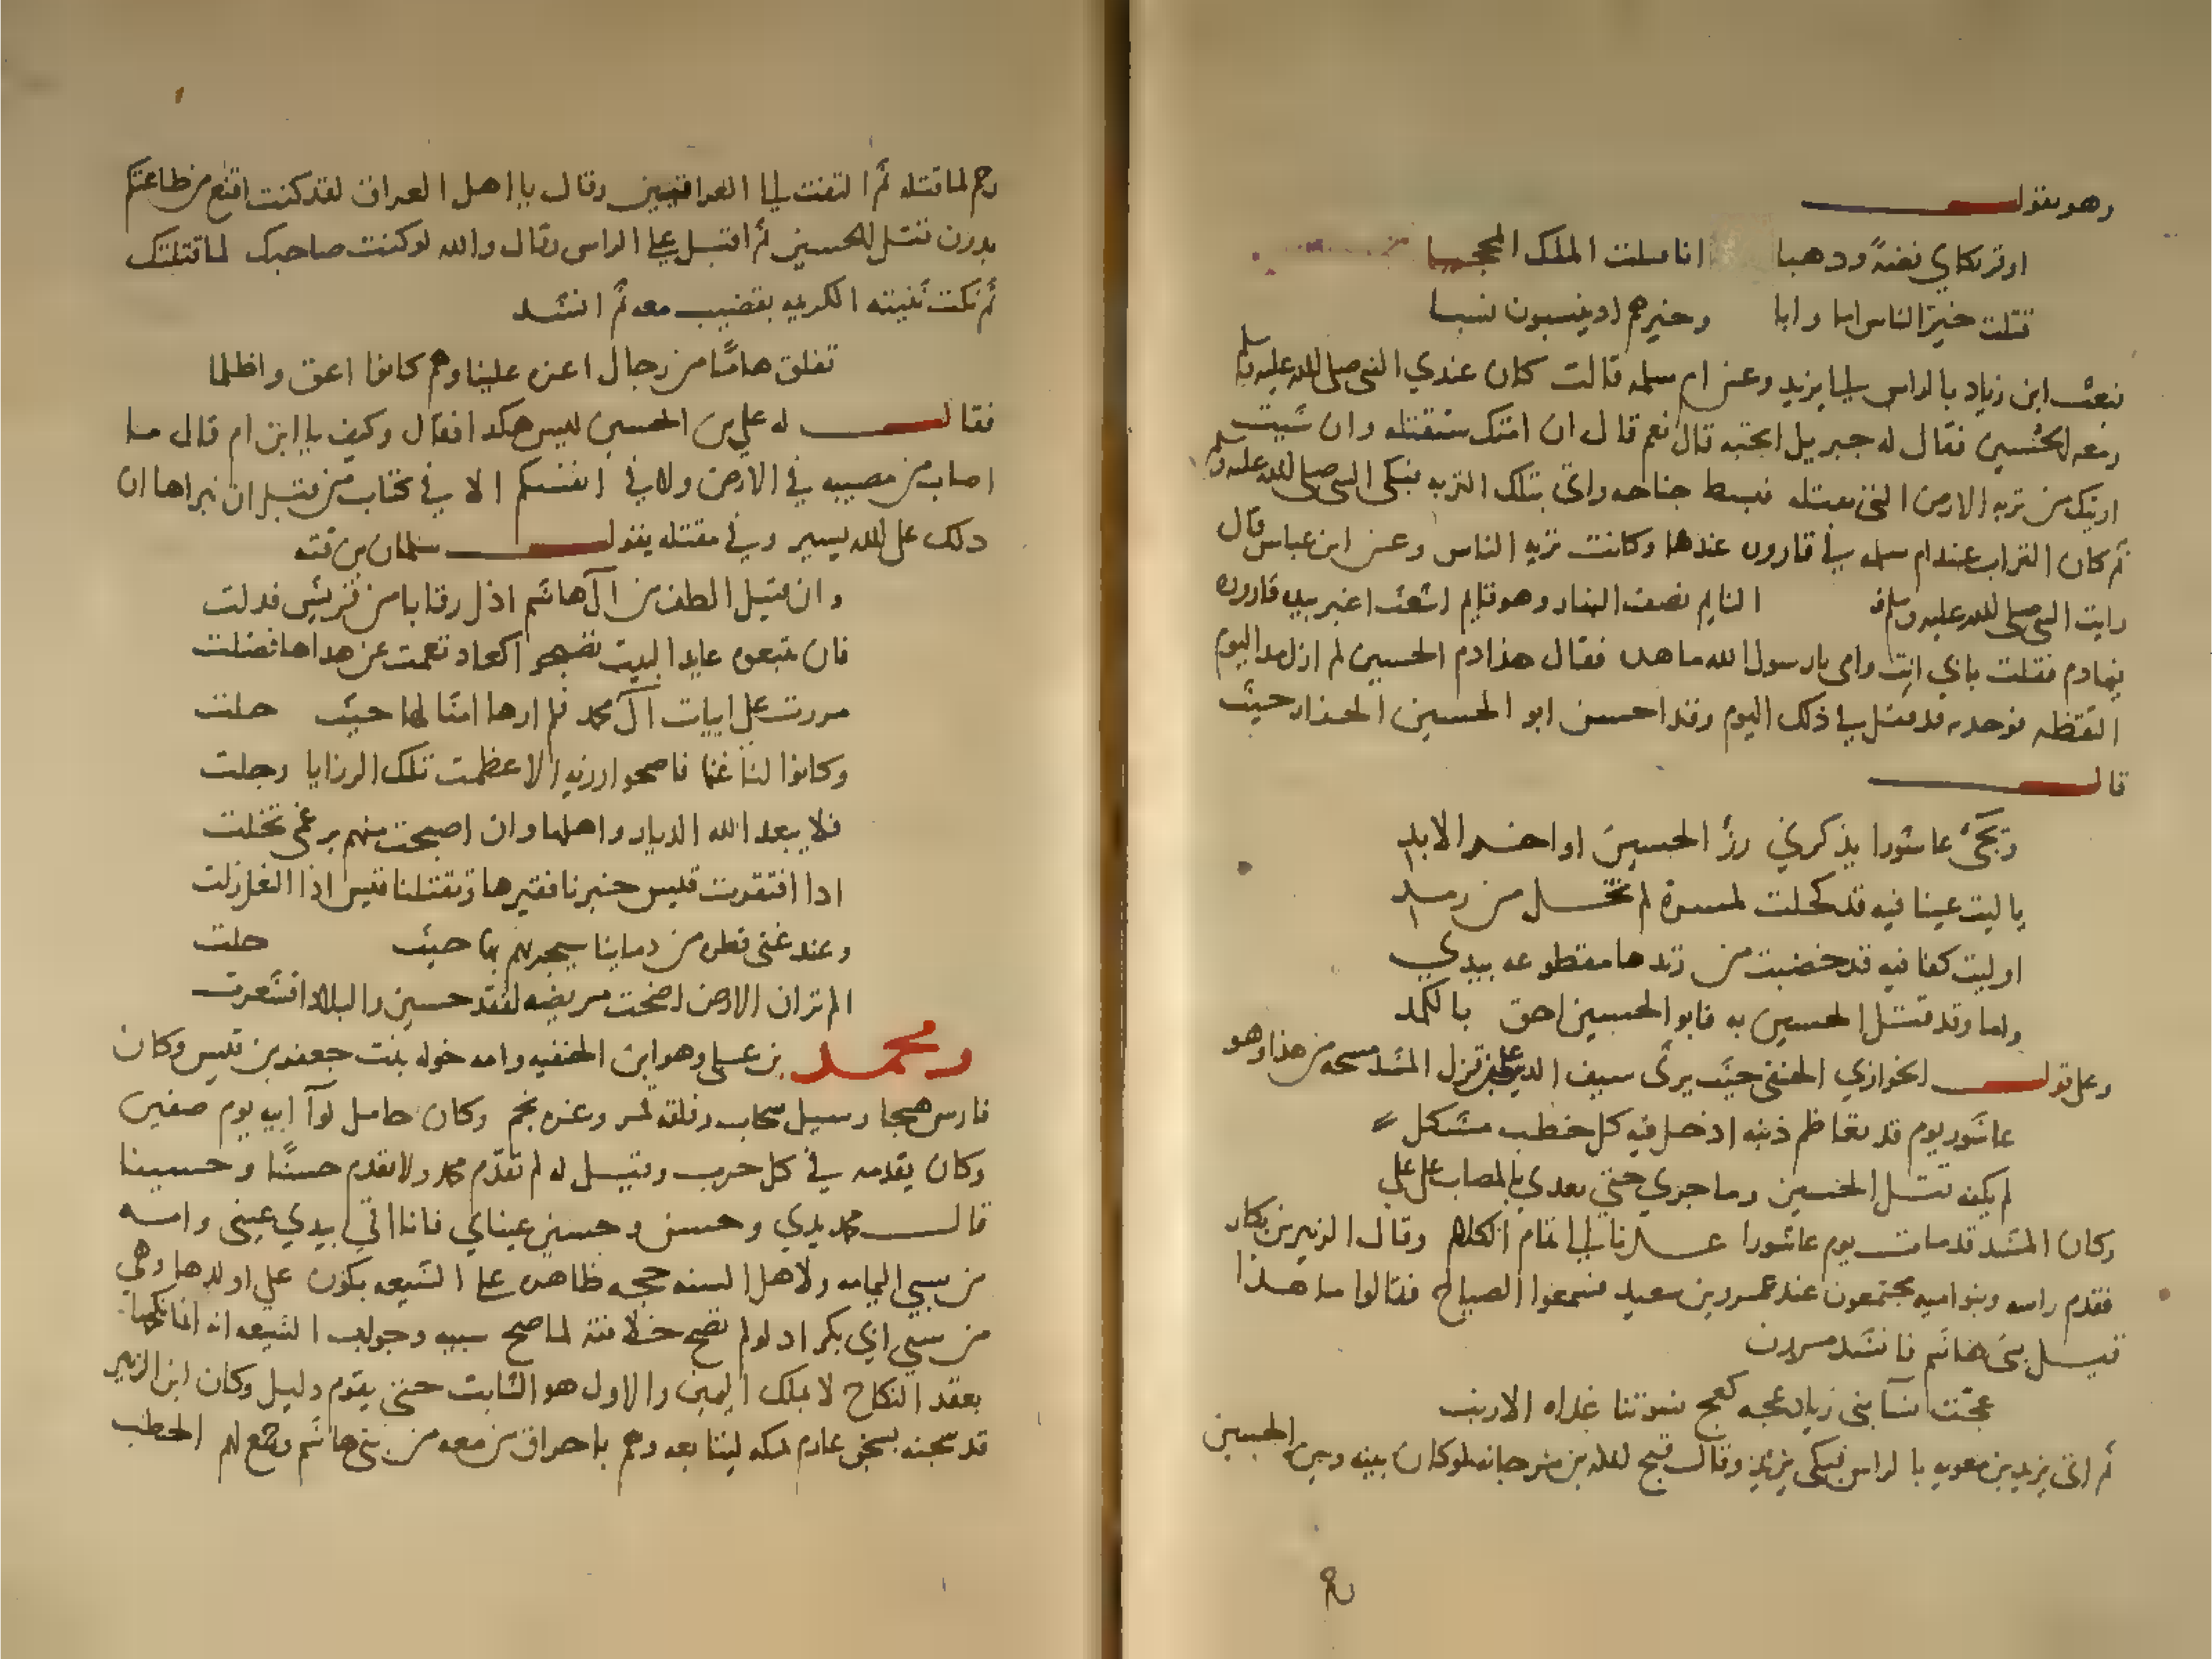 وهو يقول
اوقر ركابي فضة وذهبا انا قتلت الملك المحجبا
قتلت خير الناس اما وابا وخيرهم اذ ينسبون نسبا
فبعث ابن زياد بالراس الي يزيد وعن ام سلمه قالت كان عندي النبي صلى الله عليه وسلم
ومعه الحسين فقال له جبريل اتحبه قال نعم قال ان امتك ستقتله وان شيت
اريتك من تربه الارض التي يقتل فبسط جناحه واتي بتلك التربه فبكى النبي صلى الله عليه وسلم
ثم كان التراب عند ام سلمه في قاروره عندها وكانت تريه الناس وعن ابن عباس قال
رايت النبي صلى الله عليه وسلم النايم نصف النهار وهو قايم اشعث اغبر بيده قاروره
فيها دم فقلت بابي انت وامي يا رسول الله ما هذه فقال هذا دم الحسين لم ازل منذ اليوم
التقطه فوجد قد قتل في ذلك اليوم وقد احسن ابو الحسين الجزار حيث
قال
وتجئ عاشورا يذكرني رزؤ الحسين اواخر الابد
يا ليت عينا فيه قد كحلت لمسرة لم تخل من رمد
او ليت كفا فيه قد خضبت من زندها مقطوعه بيدي
ولما وقد قتل الحسين به فابو الحسين احق بالكمد
وعلى قول الخوارزي الحنفي حيث يرثى سيف الدين علي بن قزل المشد وهو
عاشور يوم قد تعاظم ذنبه اذ حل فيه كل خطب مشكل
لم يكفه قتل الحسين وما جري حتى تعدي بالمصاب على علي
وكان المشد قد مات يوم عاشورا الكلام وقال الزبير بن بكار
فقدم راسه وبنو اميه مجتمعون عند عمرو بن سعيد فسمعوا الصياح فقالوا ما هذا
قيل بني هاشم فانشد مروان
عجت نسا بني زياد عجه كعجيج نسوتنا غداه الارنب
ثم اتي يزيد بن معويه بالراس فبكى يزيد وقال قبح الله بن مرجانه لو كان بينه وبين الحسين
رحم لما قتله ثم التفت الي العراقيين وقال يا اهل العراق لقد كنت اقنع من طاعتكم
بدون قتل الحسين ثم اقبل على الراس وقال والله لو كنت صاحبك لما قتلتك
ثم نكت ثنيته الكريمه بقضيب معه ثم انشد
تفلق هاما من رجال اعزه علينا وهم كانوا اعق واظلما
فقال له علي بن الحسين ليس هكذا فقال وكيف يا ابن ام قال ما
اصاب من مصيبه في الارض ولا في انفسكم الا في كتاب من قبل ان نبراها ان
ذلك على الله يسير وفي مقتله يقول سلمان بن قته
وان قتيل الطف من آل هاشم اذل رقابا من قريش فذلت
فان تتبعوه عايد البيت تصبحوا كعاد تعمت عن هداها فضلت
مررت على ابيات آل محمد فلم ارها امثالها حيث حلت
وكانوا لنا غنما فاصحوا رزيه الا عظمت تلك الرزايا وجلت
فلا يبعد الله الديار واهلها وان اصبحت منهم برغمي تخلت
اذا افتقرت قيس جبرنا فقيرها وتقتلنا قيس اذا النعل زلت
وعند غني قطره من دماينا سيجزيهم بها حيث حلت
الم تر ان الارض اضحت مريضه لفقد حسين والبلاد اقشعرت
ومحمد بن علي وهو ابن الحنفيه وامه خوله بنت جعفر بن قيس وكان
فارس هيجا وسيل سحاب وفلقه قمر وغره نجم وكان حامل لوآ ابيه يوم صفين
وكان يقدمه في كل حرب وقيل له لم تقدم محمد ولا تقدم حسنا وحسينا
قال محمد يدي وحسن وحسين عيناي فانا اقي بيدي عيني وامه
من سبي اليمامه ولاهل السنه حجه ظاهره على الشيعه بكون علي اولدها وهي
من سبي ابي بكر اذ لو لم تصح خلافته لما صح سبيه وجواب الشيعه انه انما نكحها
بعقد النكاح لا بملك اليمين والاول هو الثابت حتى يقوم دليل وكان ابن الزبير
قد سجنه بسجن عارم بمكه ليبايعه وهم باحراق من معه من بني هاشم وجمع لهم الحطب